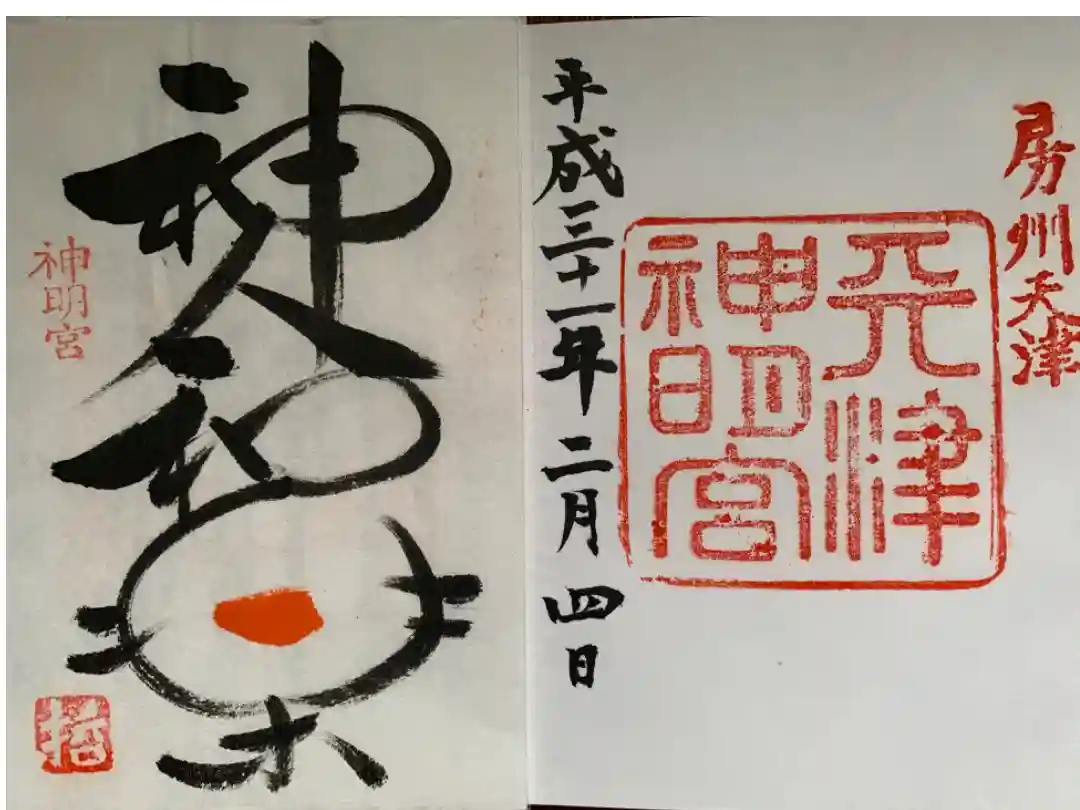 房州天津
天津
神明宮
平成三十一年二月四日
神人和楽
神明宮